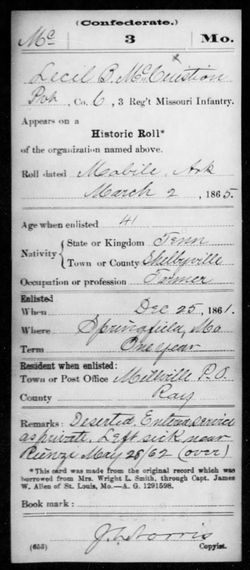 (Confederate.)
Mc 3 Mo.
Cecil B. McCuistion
Pvt, Co. C, 3 Reg't Missouri Infantry.
Appears on a
Historic Roll*
of the organization named above.
Roll dated Mobile, Ark
March 2, 1865.
Age when enlisted 41
Nativity { State or Kingdom Tenn
Town or County Shelbyville
Occupation or profession Farmer
Enlisted
When Dec 25, 1861.
Where Springfield, Mo
Term One year
Resident when enlisted:
Town or Post Office Millville P.O.
County Ray
Remarks: Deserted. Enter service
as private. Left sick near
Rienzi May 28/62 (over)
*This card was made from the original record which was
borrowed from Mrs. Wright L. Smith, through Capt. James
W. Allen of St. Louis, Mo.—A. G. 1291598.
Book mark:
(655) Copyist.